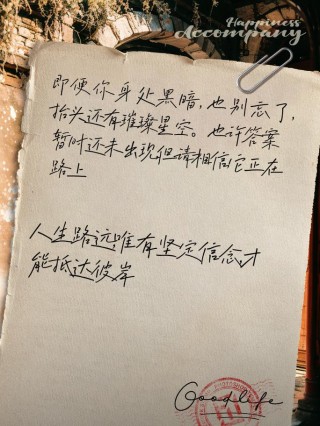 Happiness
Accompany
即便你身处黑暗,也别忘了,
抬头还有璀璨星空。也许答案
暂时还未出现但请相信它正在
路上
人生路远,唯有坚定信念,才
能抵达彼岸
Goodlife